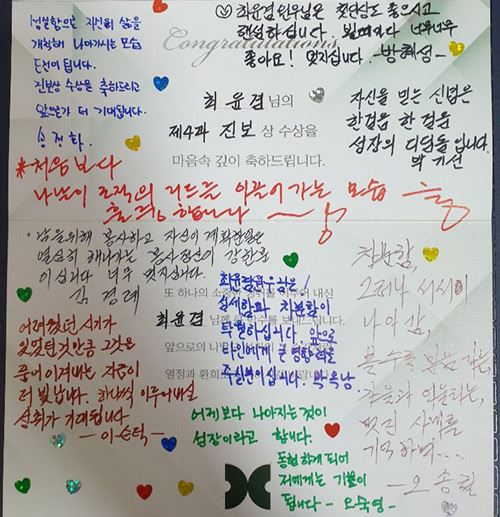 성실함으로 자신의 삶을
개척해 나아가시는 모습
도전이 됩니다.
진보상 수상을 축하드리고
앞으로가 더 기대됩니다.
송정화
Congratulations
최윤겸 원우님은 첫인상도 좋으시고
핸섬하십니다.
좋아요! 멋지십니다. 방혜성-
최윤겸 님의
제4과 진보 상 수상을
마음속 깊이 축하드립니다.
자신을 믿는 신념은
한걸음 한걸음
성장의 디딤돌입니다.
박기선
*처음보다
나날이 조직의 리드를 이끌어가는 모습
훌륭합니다
남을위해 봉사하고 자신이 계획한일은
열심히 해나가는 봉사정신이 강한분
이십니다 너무 멋지십니다.
김경례
최윤겸원우님은!
섬세함과 차분함이
탁월하십니다 앞으로
타인에게 큰영향력을
주실분이십니다.
또 하나의 소중한
내신
최윤겸 님께
수를 보내드립니다.
앞으로의 나
열정과 환희
어려웠던 시기가
있었던것만큼 그것은
중이겨내는 자음이
더 빛납니다. 하나씩 이루어내실
성취가 기대됩니다
-이순덕-
어제보다 나아지는것이
성장이라고 합니다.
동행하게 되어
저에게는 기쁨이
됩니다 - 오숙영-
차분함,
그러나 서서히
나아감,
멋진 사례를
기억하며...
-오송필